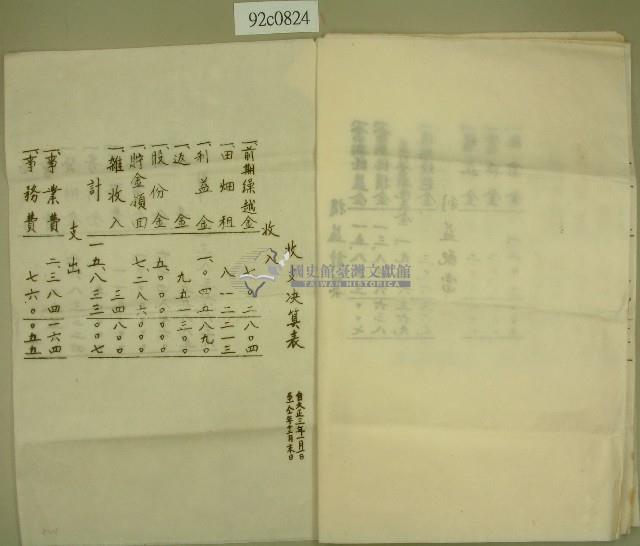 92c0824
收支決算表
自大正三年一月一日
至仝年十二月末日
收入
一、前期繰越金 七〇二八〇四
一、田畑租 八一二二一三
一、利益金 一、〇四五八九〇
一、返金 九五一三〇〇
一、股份金 五、〇〇〇〇〇〇
一、貯金領回 七、二八六〇〇〇
一、雜收入 三四八〇〇
計 一五、八三三〇〇七
支出
一、事業費 二、三八四一六四
一、事務費 七六〇〇五五
國史館臺灣文獻館
TAIWAN HISTORICA